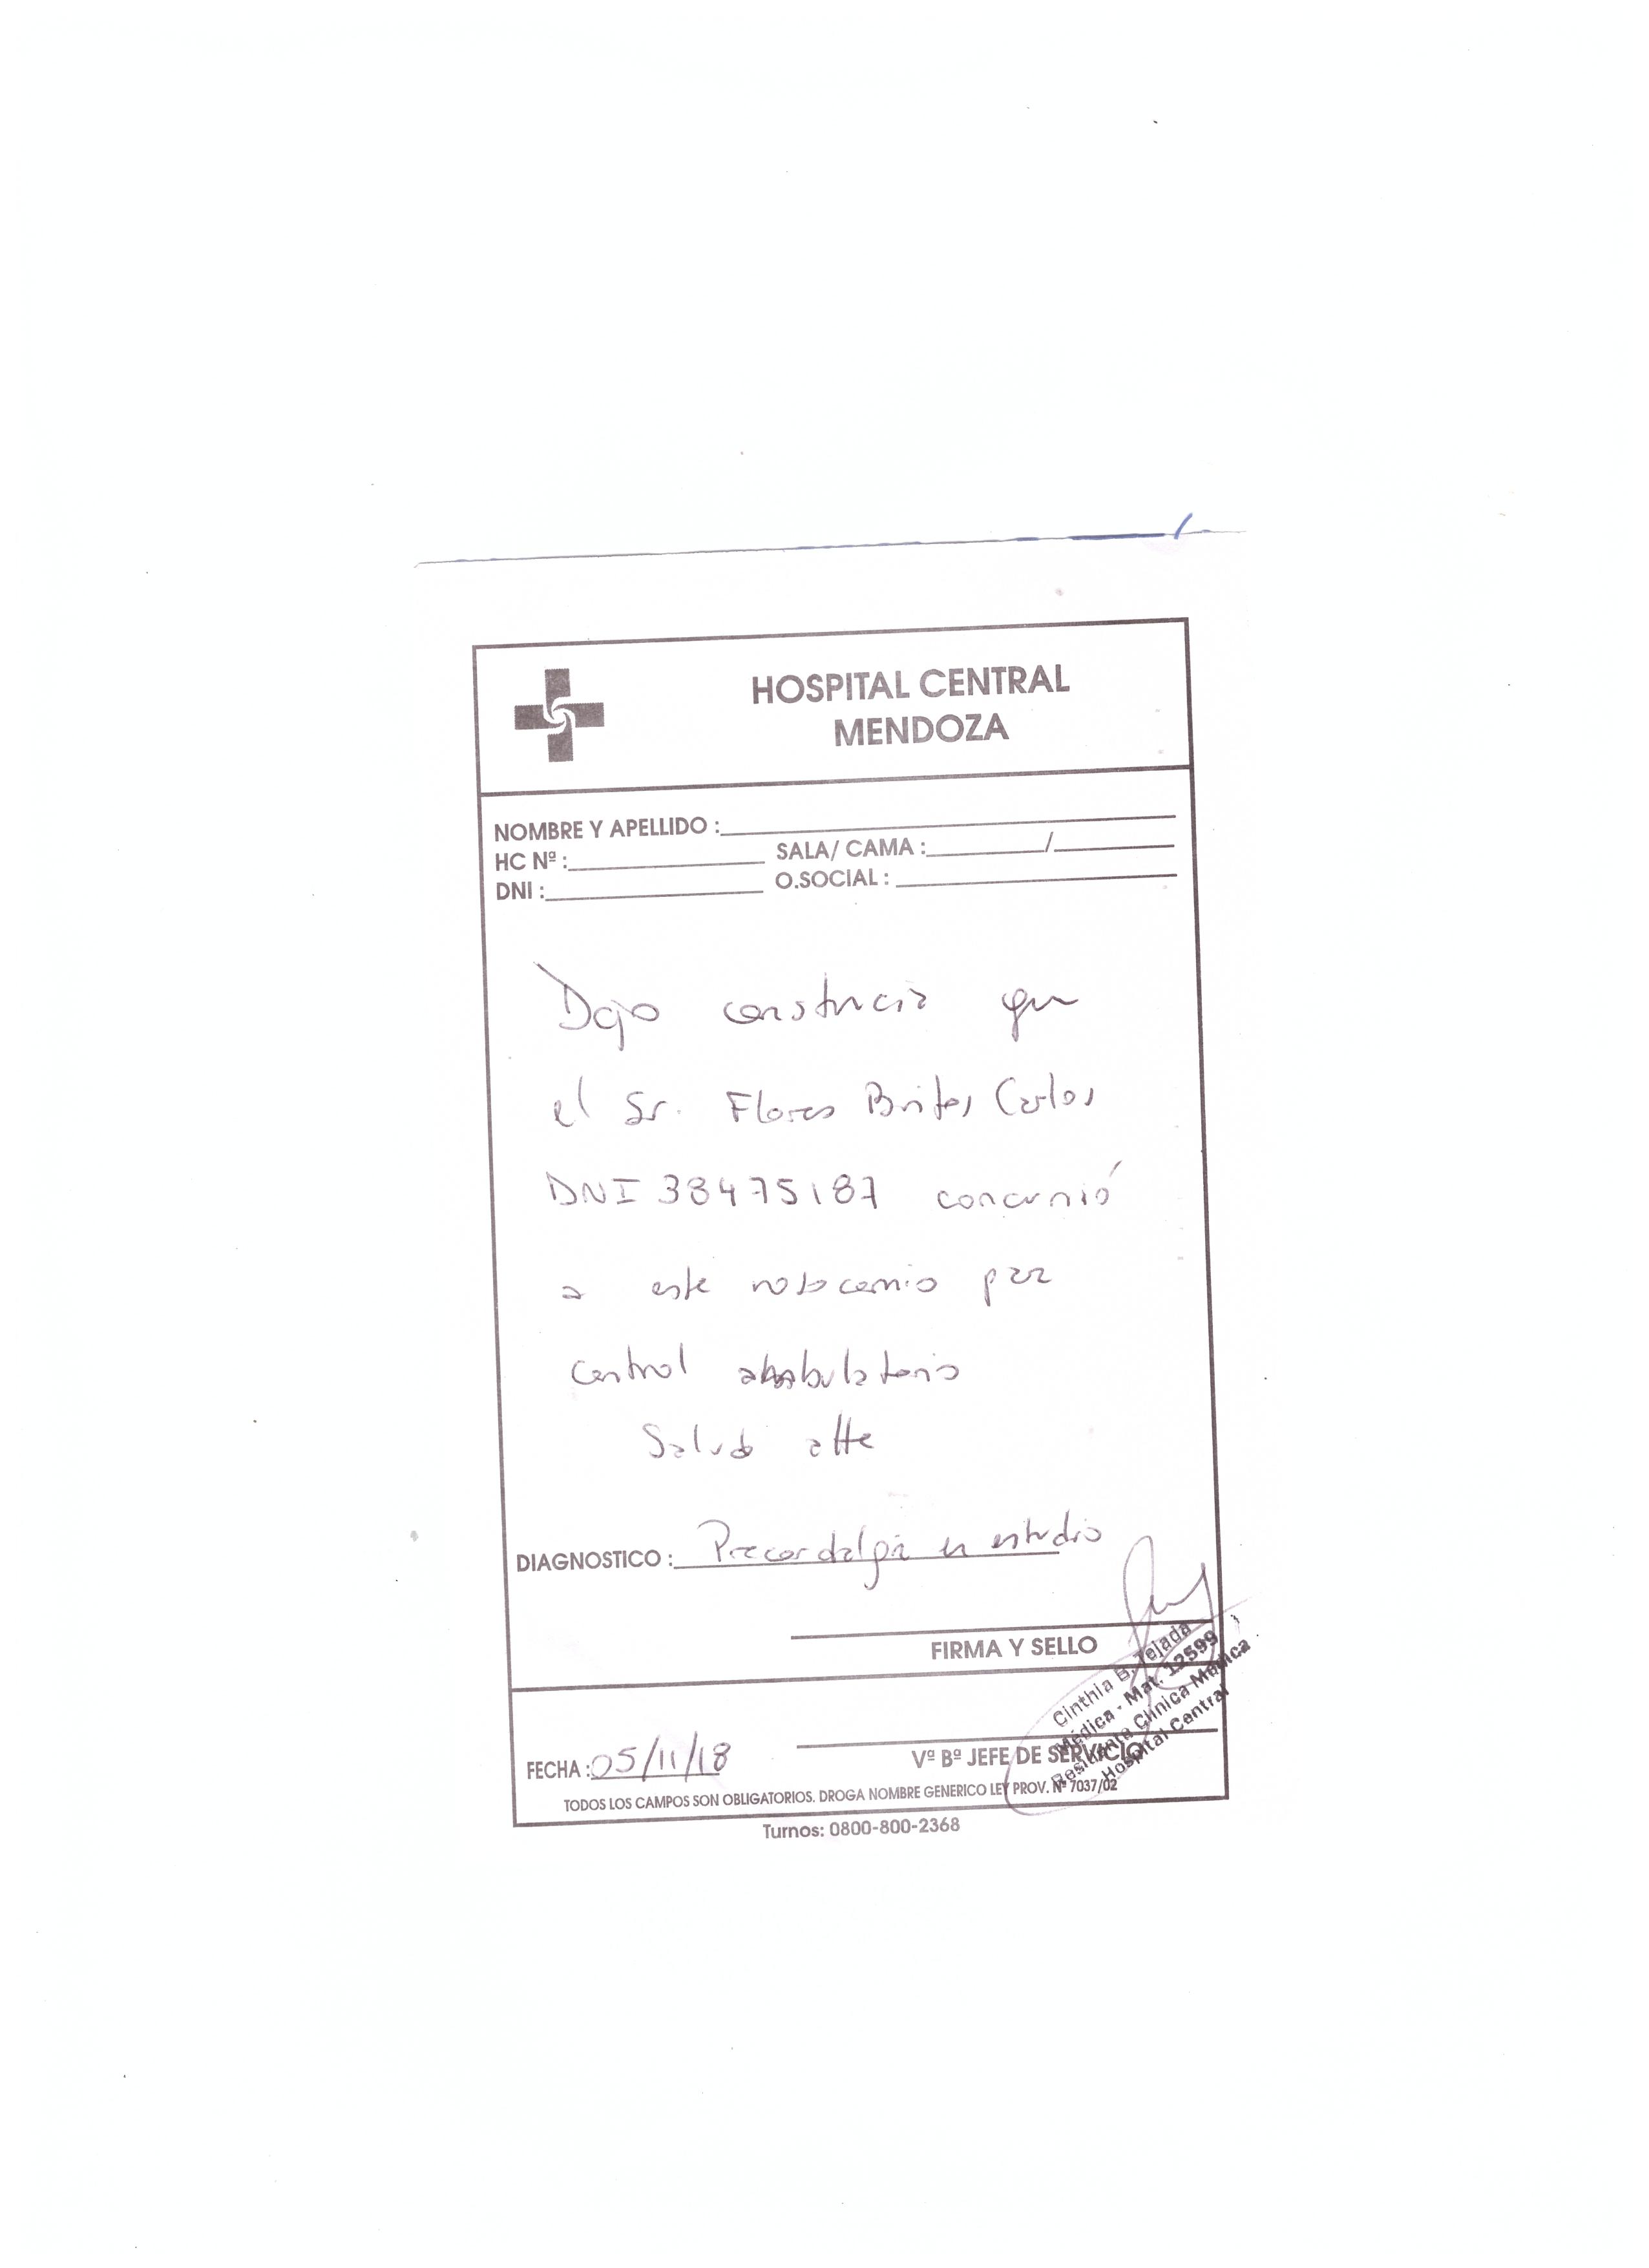 HOSPITAL CENTRAL
MENDOZA
NOMBRE Y APELLIDO :
HC Nº : SALA/ CAMA : /
DNI : O.SOCIAL :
Dejo constancia que
el Sr. Flores Brites Carlos
DNI 38475187 concurrió
a este nosocomio para
control ambulatorio
Saludo atte
DIAGNOSTICO : Precordalgia en estudio
FIRMA Y SELLO
Cinthia B. Tejada
Médica - Mat. 12599
Residente Clínica Médica
Hospital Central
FECHA : 05/11/18 Vº Bº JEFE DE SERVICIO
TODOS LOS CAMPOS SON OBLIGATORIOS. DROGA NOMBRE GENERICO LEY PROV. Nº 7037/02
Turnos: 0800-800-2368